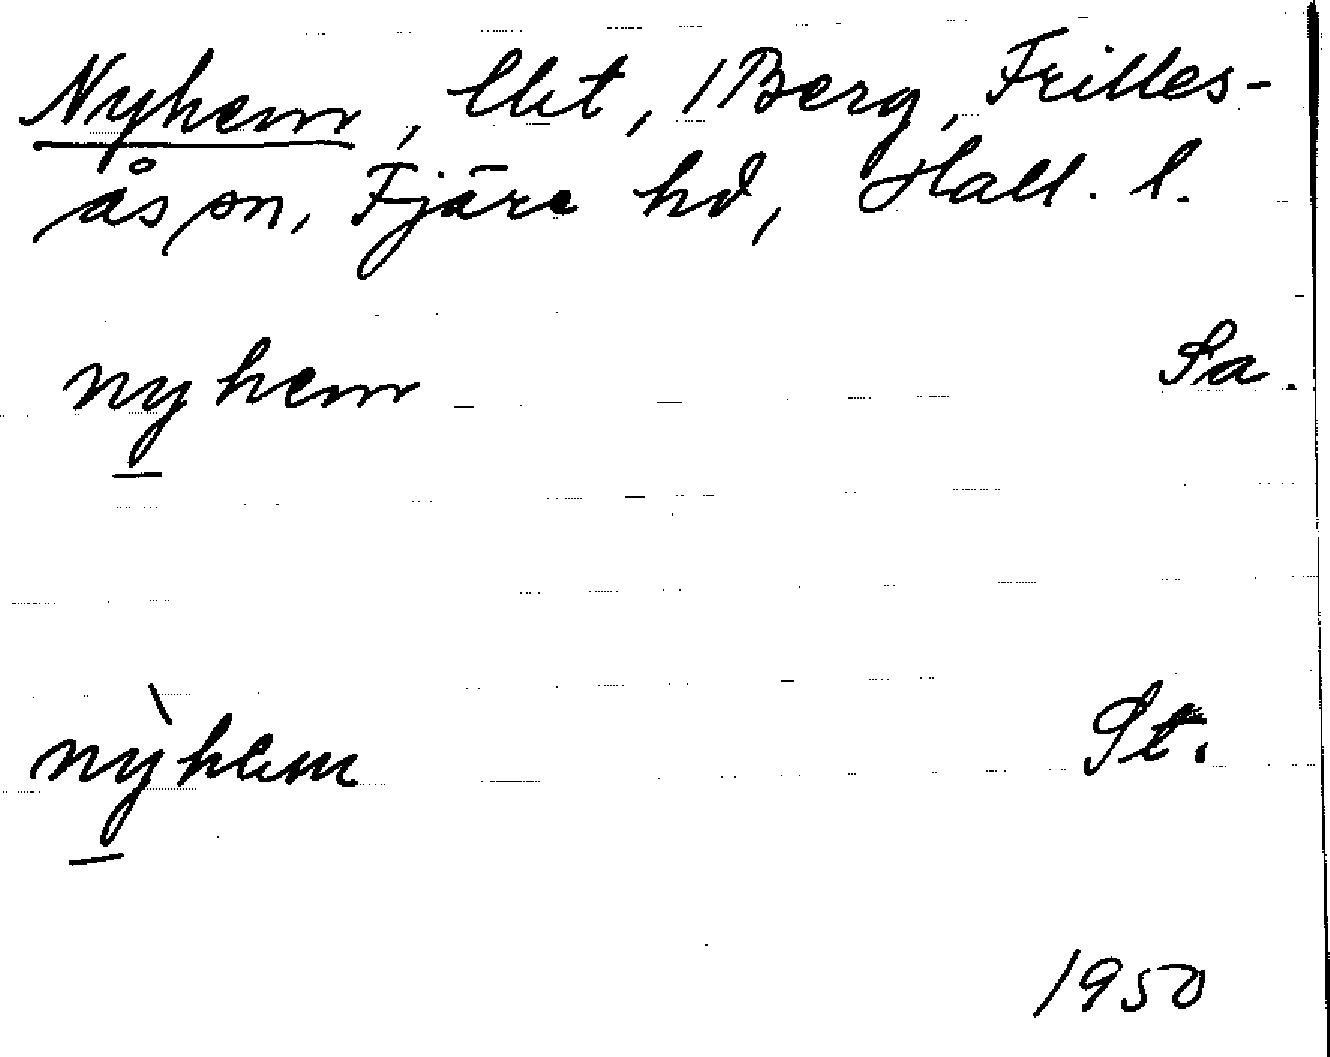 Nyhem, lht, 1 Berg, Frilles-
ås sn, Fjäre hd, Hall. l.
nyhem Sa.
nỳhem St.
1950